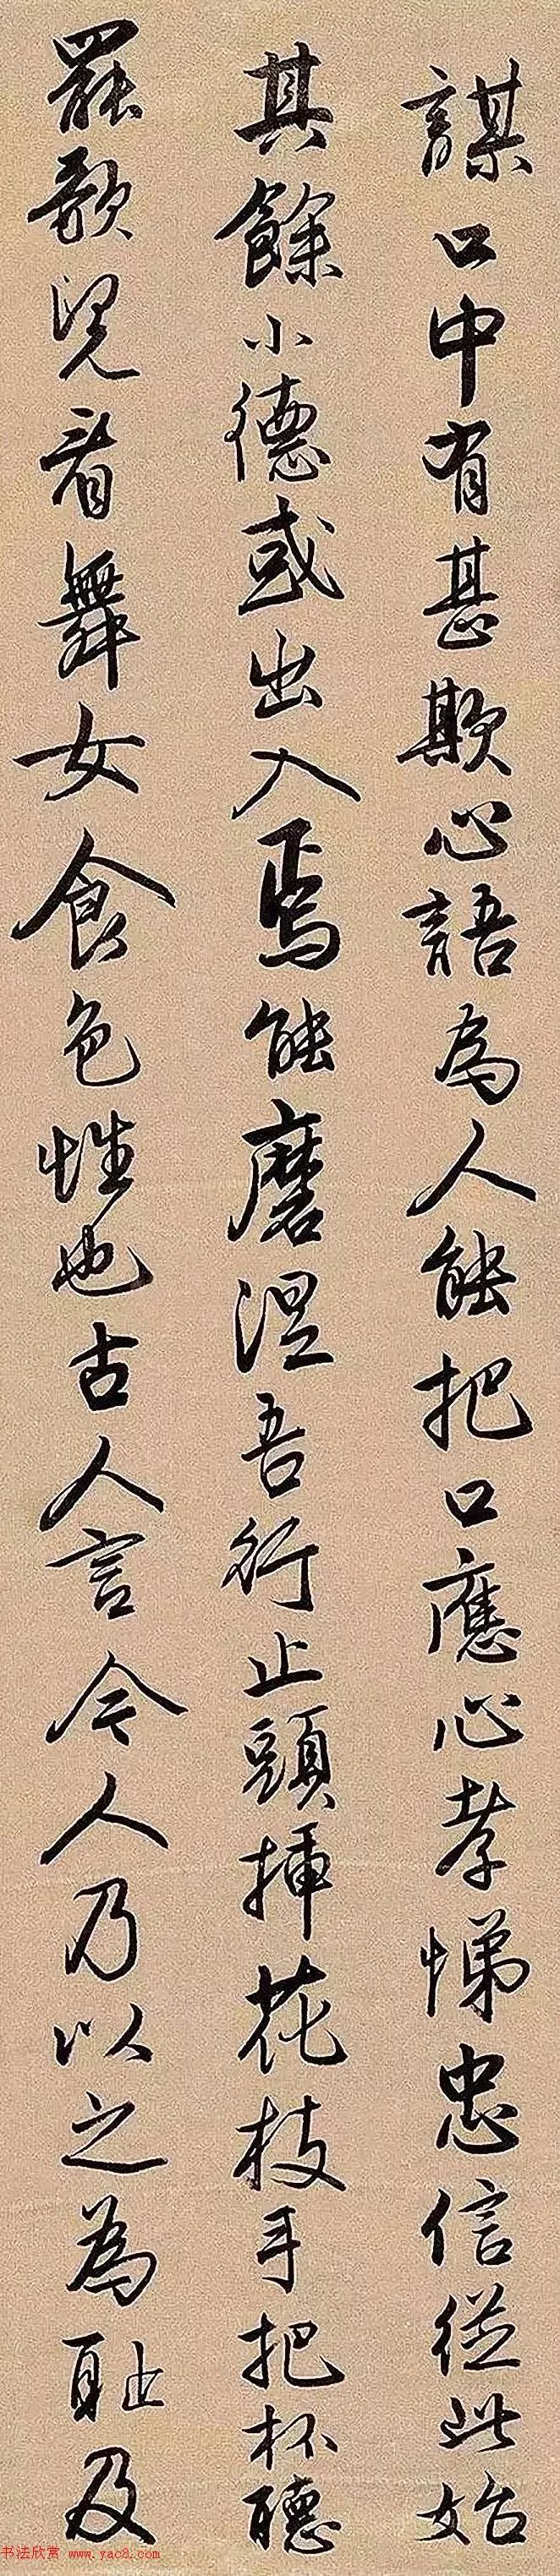 謀口中有甚欺心語為人能把口應心孝悌忠信從此始
其餘小德或出入焉能磨涅吾行止頭插花枝手把杯聽
罷歌兒看舞女食色性也古人言今人乃以之為恥及
书法欣赏 www.yac8.com